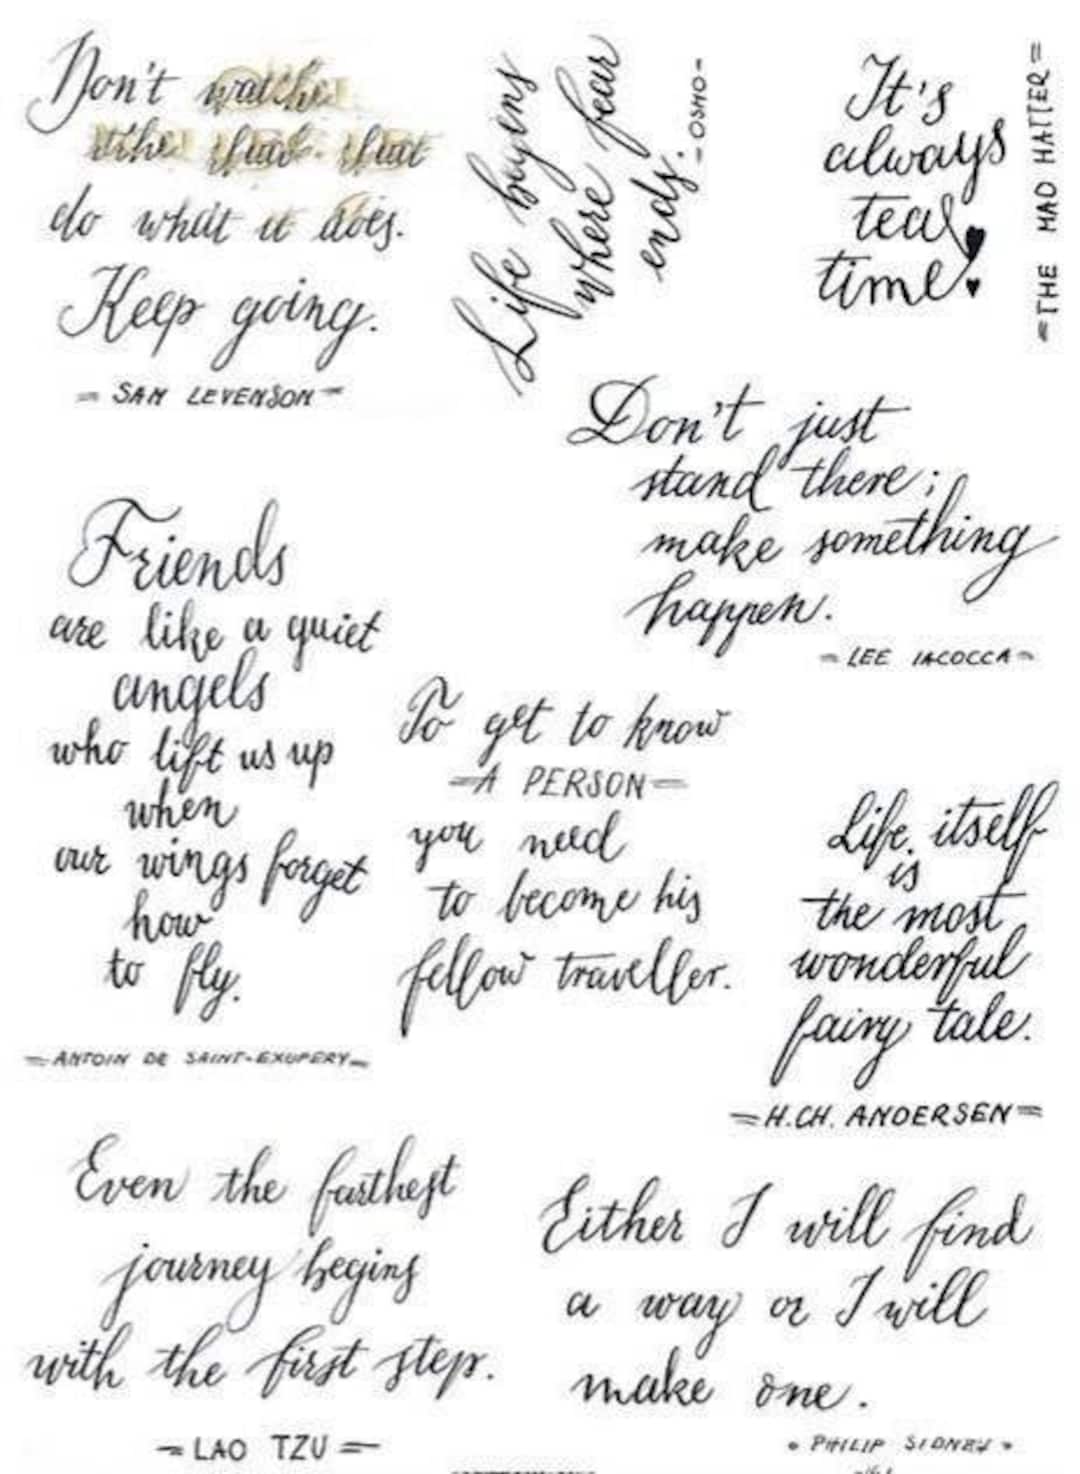 Don't
do what it does.
Keep going.
= SAM LEVENSON =
Life begins
where fear
ends.
- OSHO -
It's
always
tea
time!
= THE MAD HATTER =
Don't just
stand there;
make something
happen.
= LEE IACOCCA =
Friends
are like a quiet
angels
who lift us up
when
our wings forget
how
to fly.
= ANTOIN DE SAINT-EXUPERY =
To get to know
= A PERSON =
you need
to become his
fellow traveller.
Life itself
is
the most
wonderful
fairy tale.
= H.CH. ANDERSEN =
Even the farthest
journey begins
with the first step.
= LAO TZU =
Either I will find
a way or I will
make one.
• PHILIP SIDNEY •